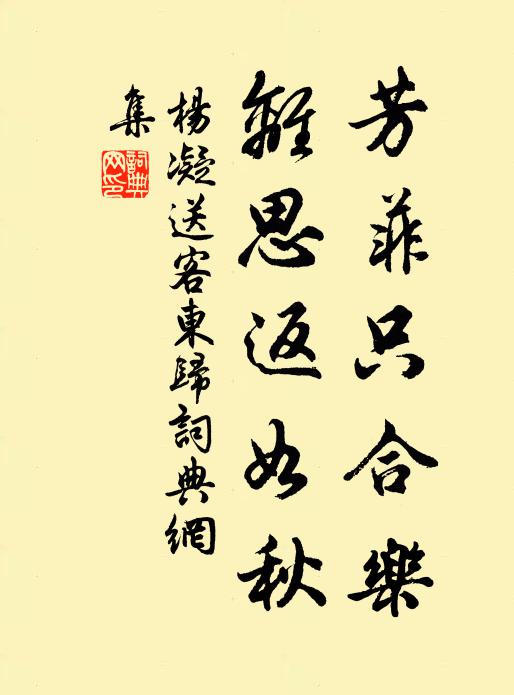 芳菲只合樂
離思返如秋
楊凝送客東歸詞典網
集
詞典
网印